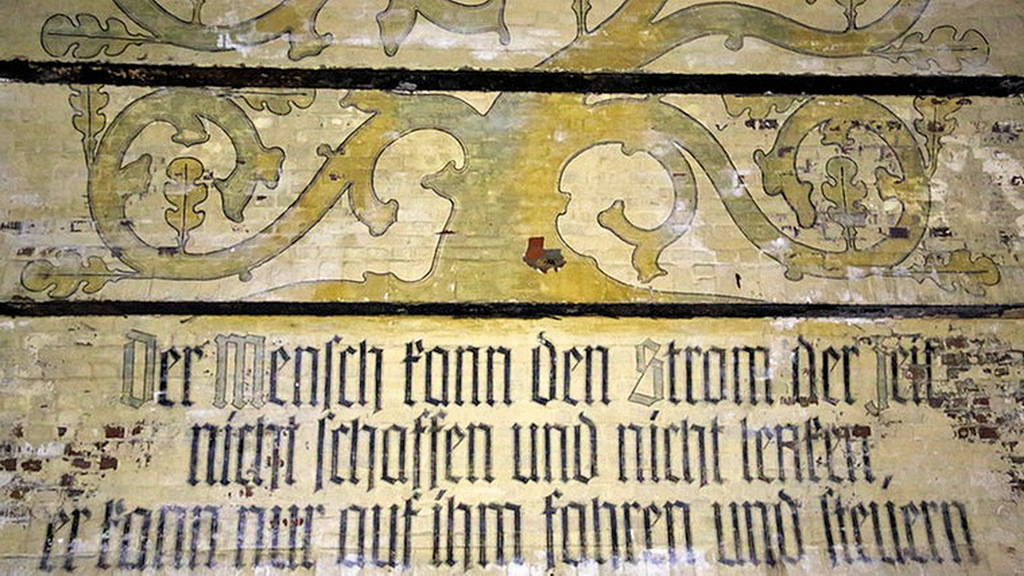 Der Mensch kann den Strom der Zeit
nicht schaffen und nicht lenken,
er kann nur auf ihm fahren und steuern